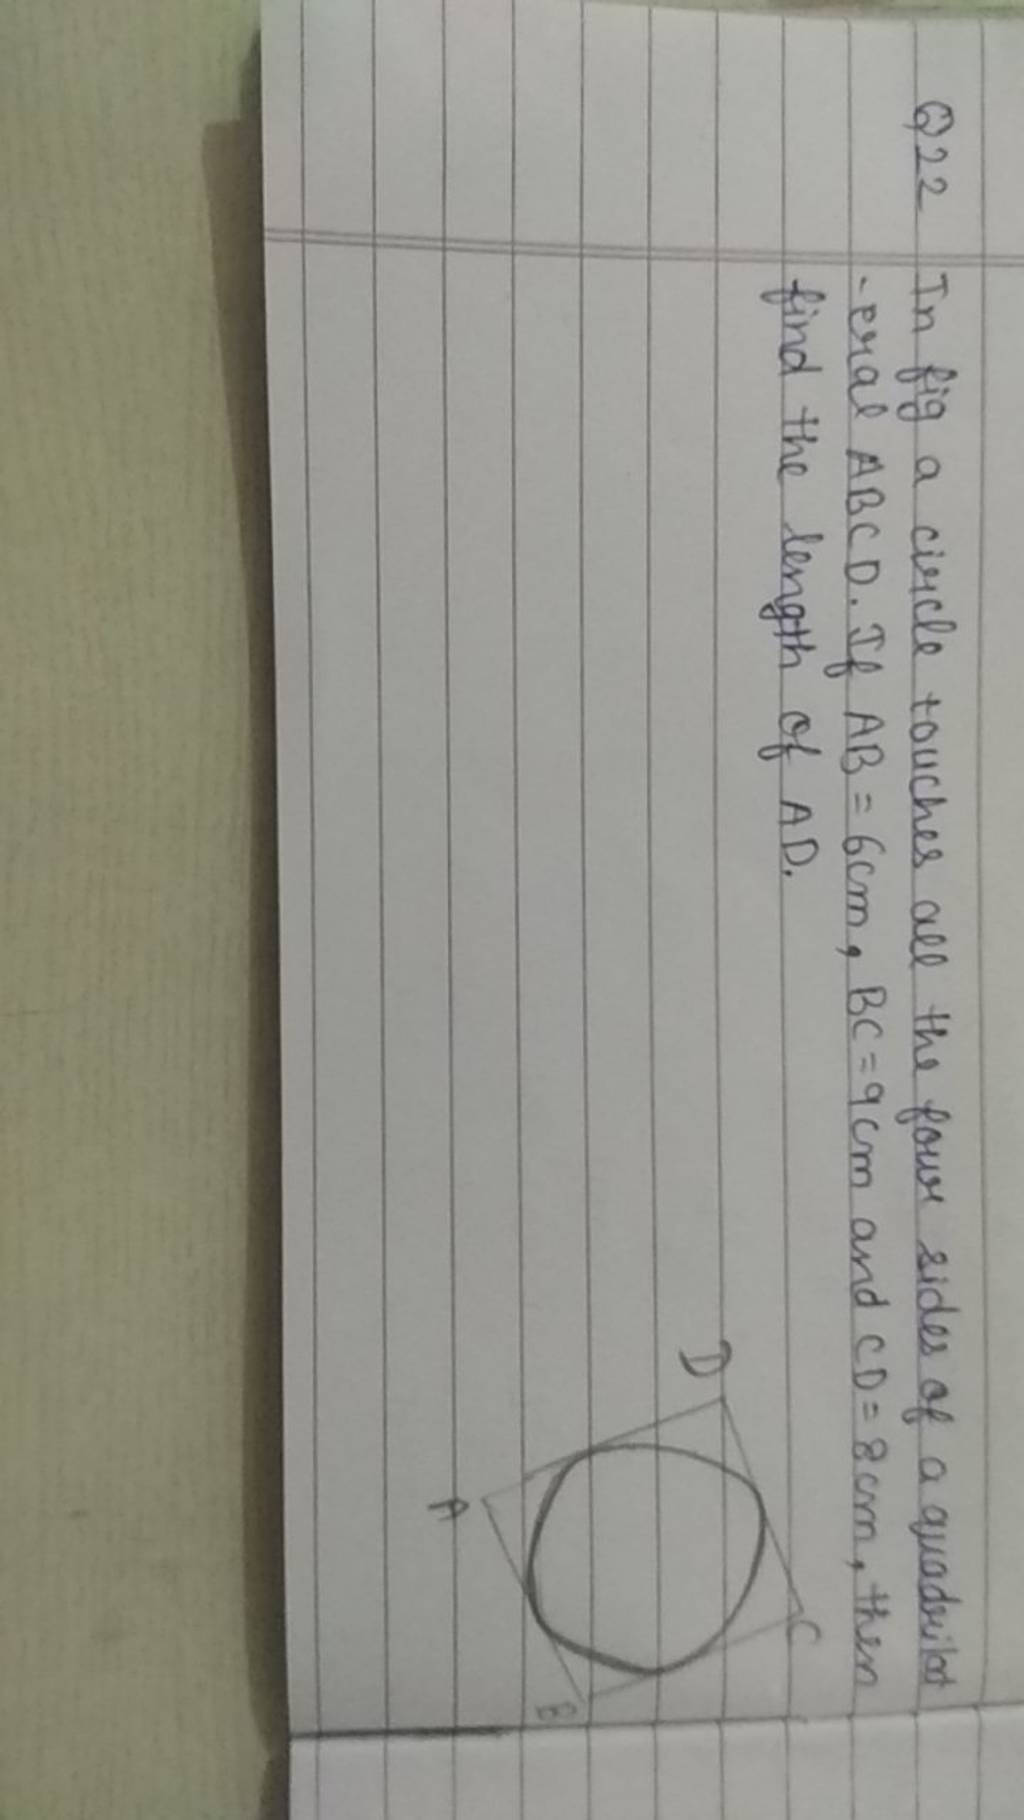 Q22 In fig a circle touches all the four sides of a quadrilat
-eral ABCD. If AB = 6cm, BC = 9cm and CD = 8cm, then
find the length of AD.
D
C
A
B